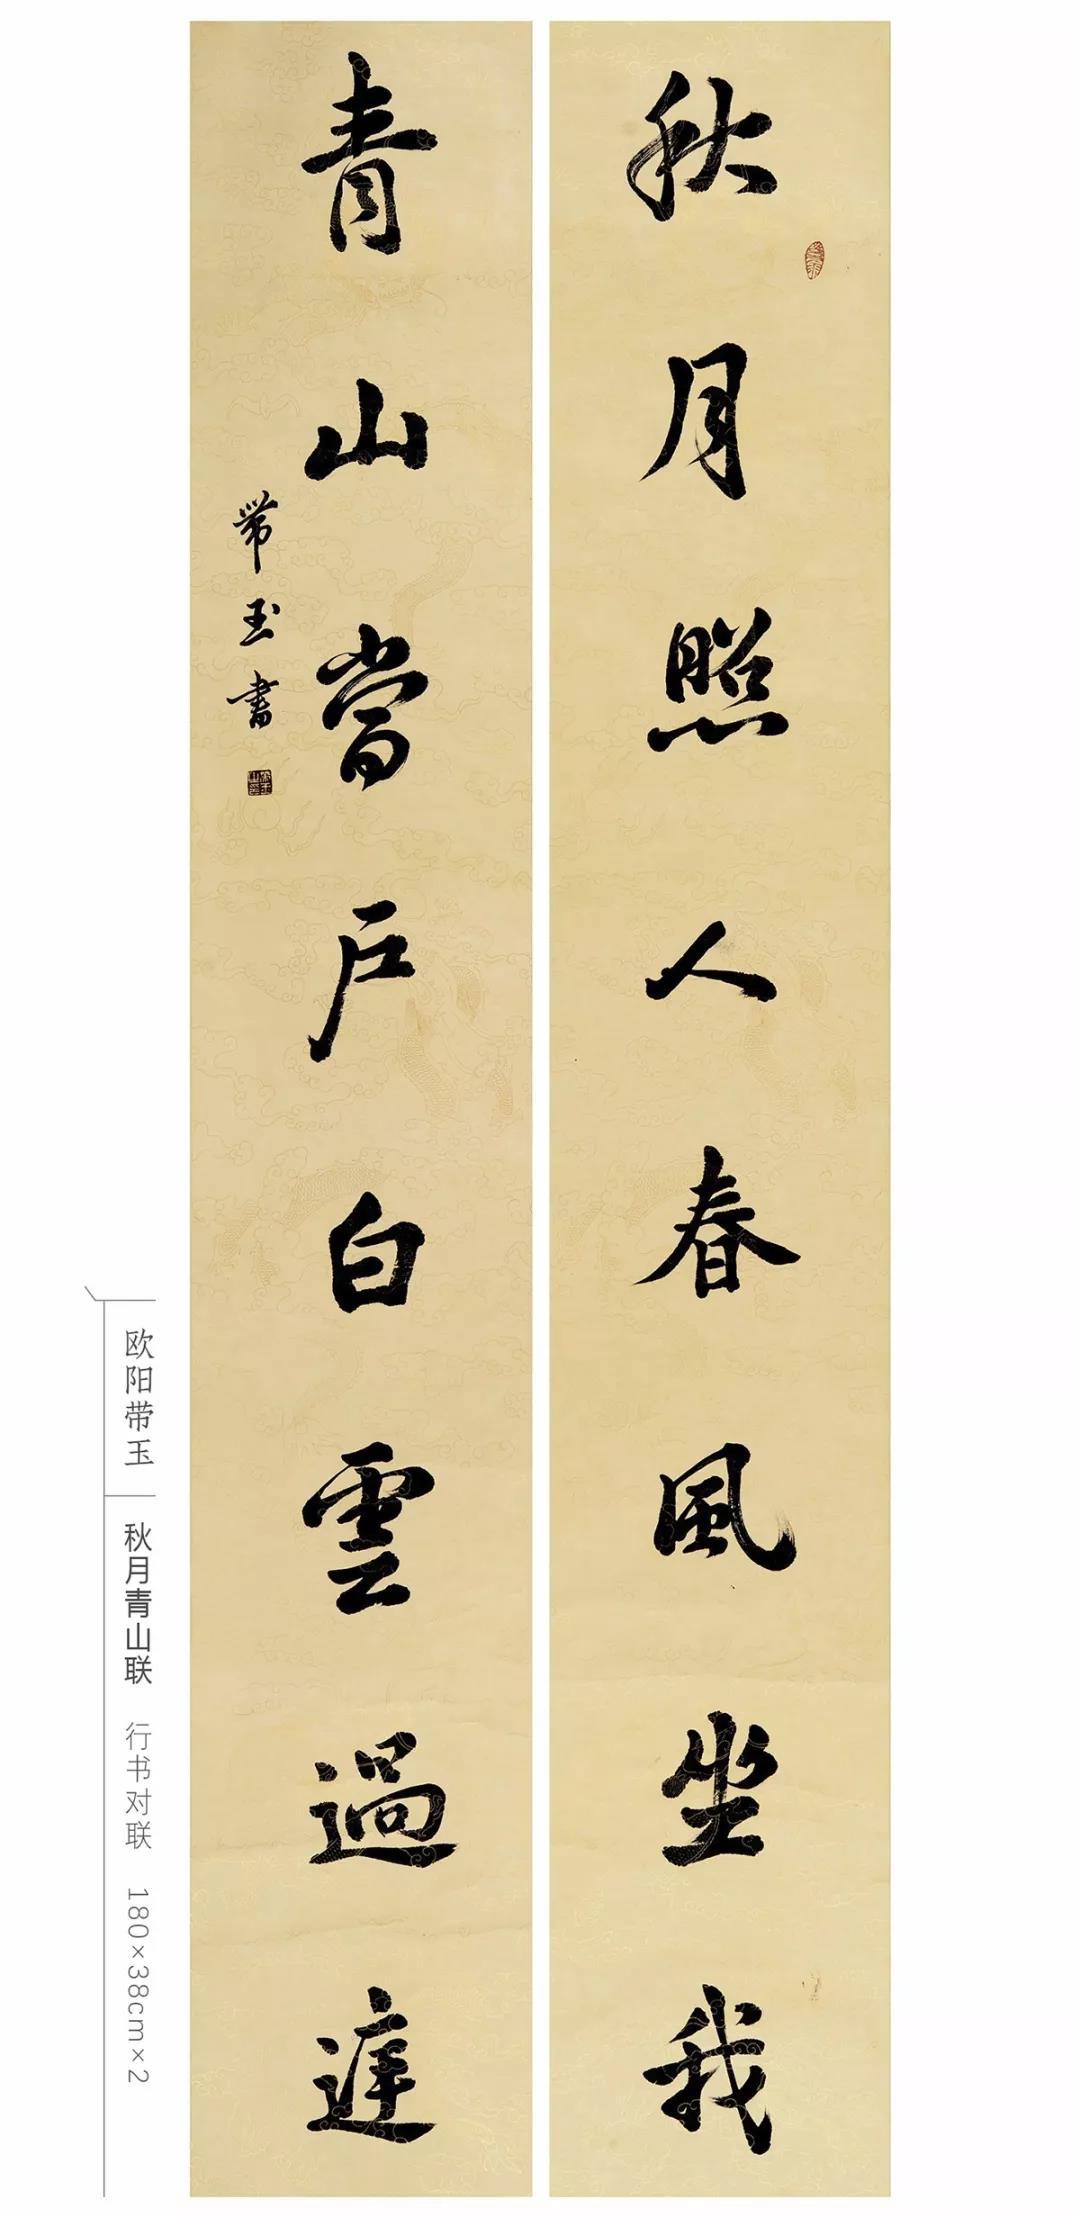 秋月照人春風坐我
青山當戶白雲過庭
帶玉書
欧阳带玉
秋月青山联 行书对联 180×38cm×2